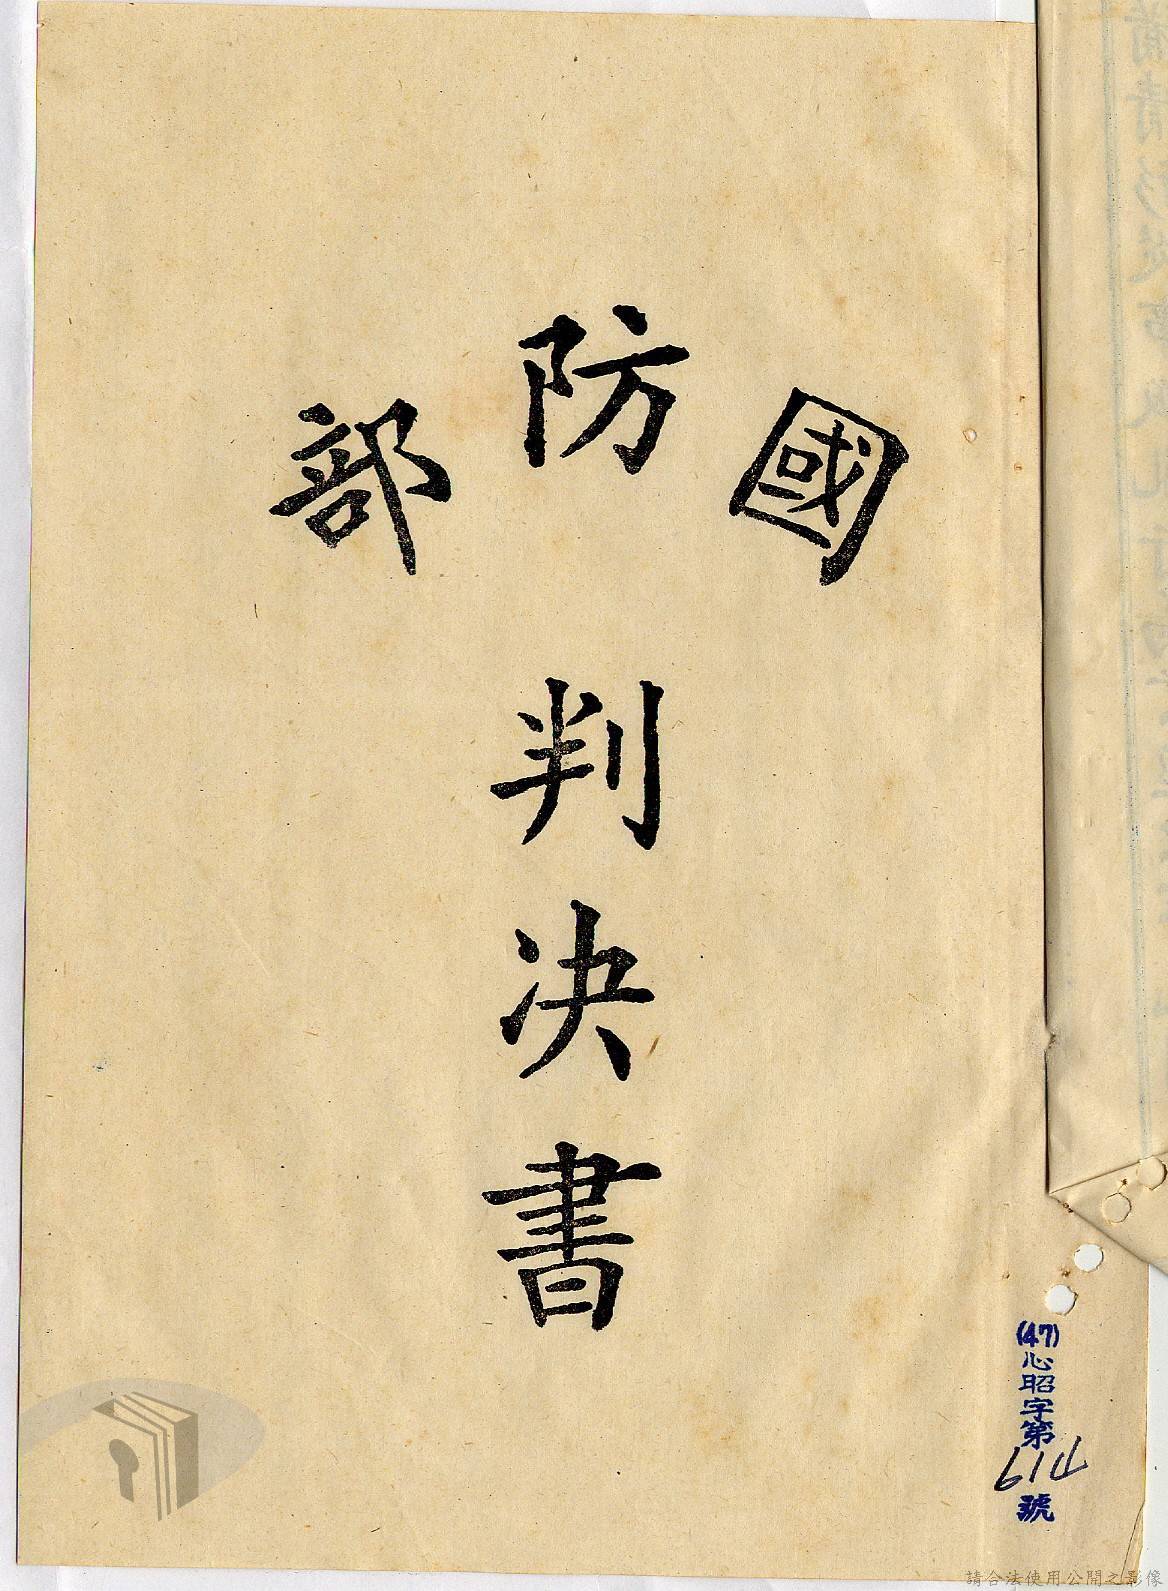 國防部
判決書
(47)心昭字第614號
請合法使用公開之影像